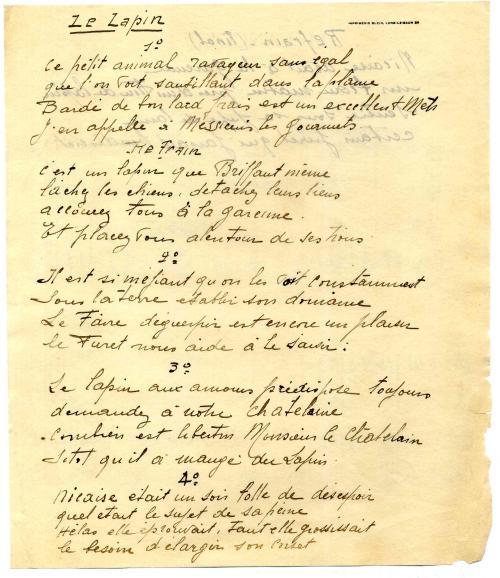 Le Lapin
IMPRIMERIE KLEIN, LONS-LE-SAUN
1º
Ce petit animal ravageur sans egal
que l'on voit sautillant dans la plaine
Bardé de bon lard frais est un excellent Mets
J'en appelle à Messieurs les gourmets.
Refrain
C'est un lapin que Briffaut mène
lachez les chiens, detachez leurs liens
accourez tous à la garenne.
Et placez vous alentour de ses trous.
2º
Il est si mefiant qu'on les voit constamment
Sous la terre etablir son domaine
Le Faire déguerpir est encore un plaisir
le Furet nous aide à le saisir :
3º
Le lapin aux amours prédispose toujours
demandez à notre chatelaine
Combien est libertin Monsieur le chatelain
Sitot qu'il a mangé du Lapin.
4º
Nicaise etait un soir folle de desespoir
quel etait le sujet de sa peine
Helas elle éprouvait, tant elle grossissait
le besoin d'élargir son corset